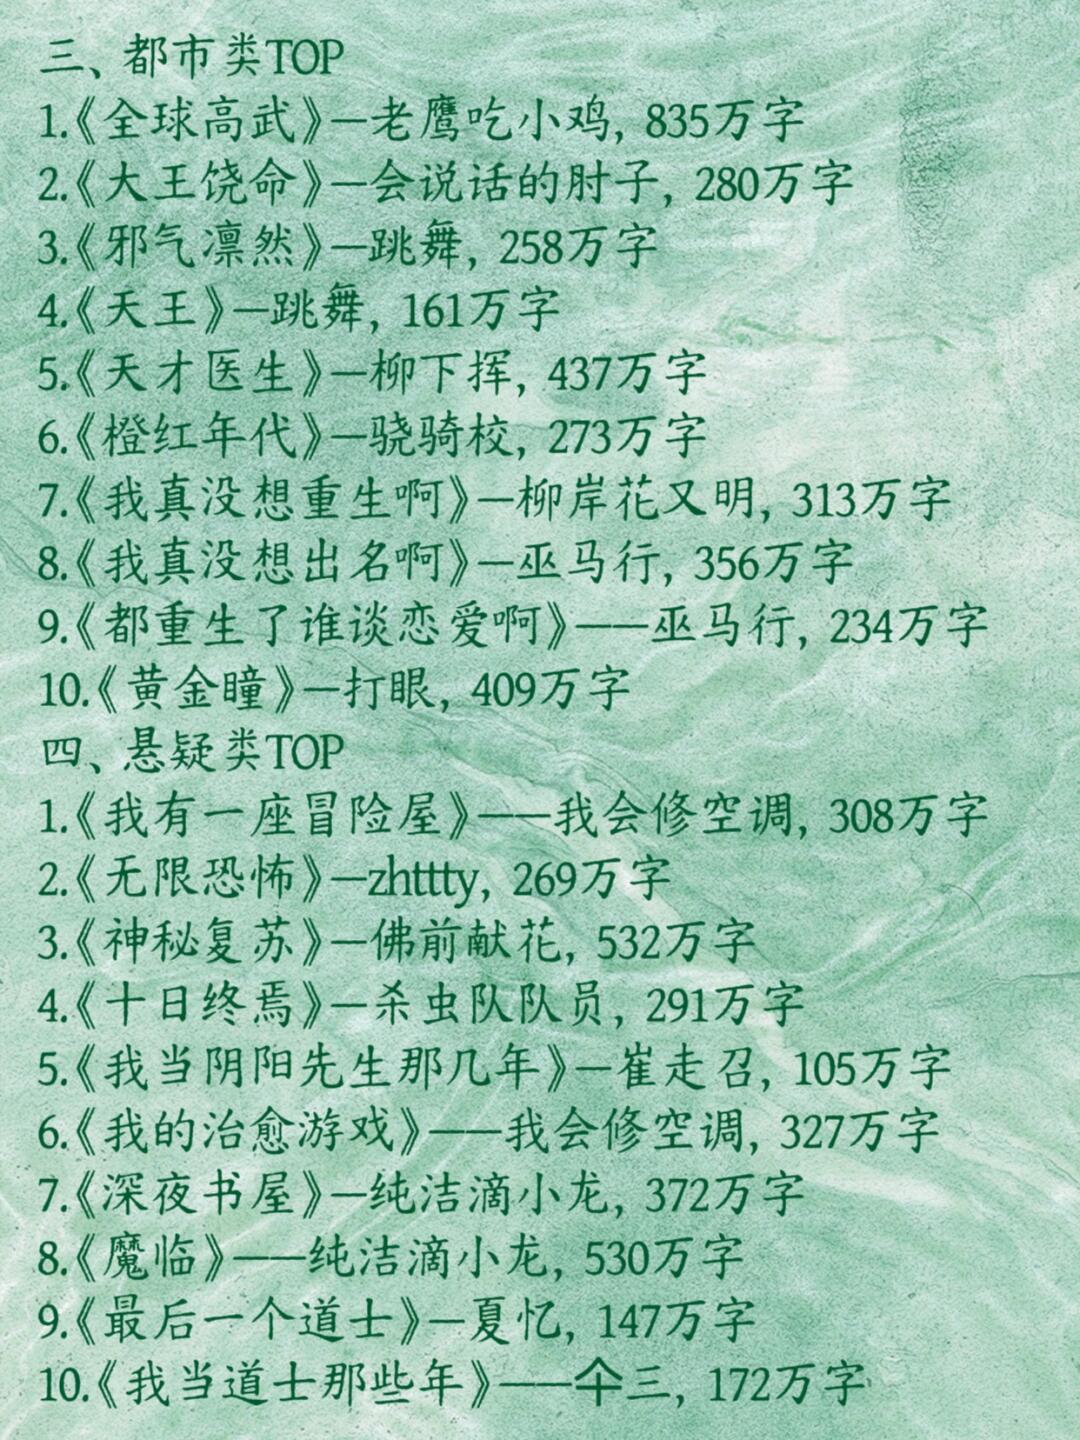 三、都市类TOP
1.《全球高武》—老鹰吃小鸡, 835万字
2.《大王饶命》—会说话的肘子, 280万字
3.《邪气凛然》—跳舞, 258万字
4.《天王》—跳舞, 161万字
5.《天才医生》—柳下挥, 437万字
6.《橙红年代》—骁骑校, 273万字
7.《我真没想重生啊》—柳岸花又明, 313万字
8.《我真没想出名啊》—巫马行, 356万字
9.《都重生了谁谈恋爱啊》——巫马行, 234万字
10.《黄金瞳》—打眼, 409万字
四、悬疑类TOP
1.《我有一座冒险屋》——我会修空调, 308万字
2.《无限恐怖》—zhttty, 269万字
3.《神秘复苏》—佛前献花, 532万字
4.《十日终焉》—杀虫队队员, 291万字
5.《我当阴阳先生那几年》—崔走召, 105万字
6.《我的治愈游戏》——我会修空调, 327万字
7.《深夜书屋》—纯洁滴小龙, 372万字
8.《魔临》——纯洁滴小龙, 530万字
9.《最后一个道士》—夏忆, 147万字
10.《我当道士那些年》——仐三, 172万字